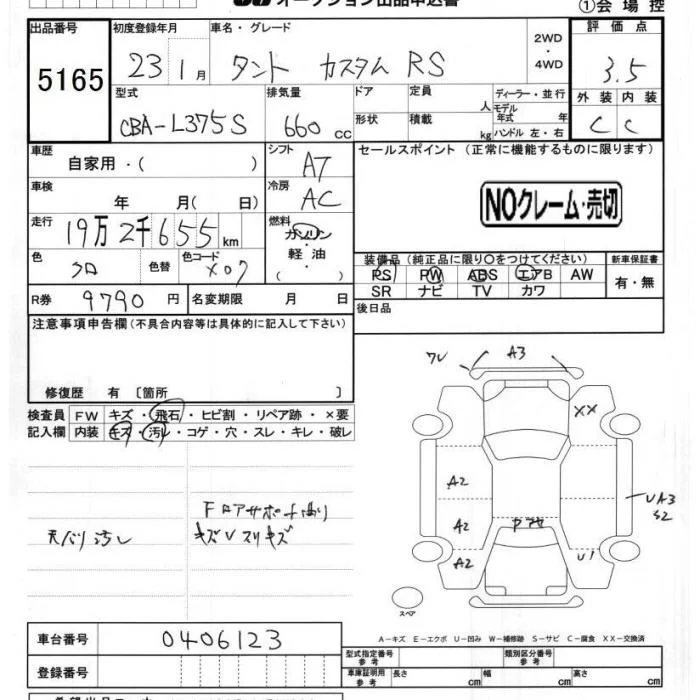 オークション出品申込書
①会場控
出品番号 初度登録年月 車名・グレード 2WD・4WD 評価点
5165 23 1月 タント カスタム RS 3.5
型式 排気量 ドア 定員 人 ディーラー・並行 外装 内装
CBA-L375S 660 cc 形状 積載 kg モデル年式 年 ハンドル 左・右 C C
車歴 自家用・( ) シフト AT セールスポイント (正常に機能するものに限ります)
車検 年 月( 日) 冷房 AC
NOクレーム・売切
走行 19万2千655km 燃料 ガソリン・軽油・( )
色 クロ 色替 色コード X07
装備品(純正品に限り○をつけてください) 新車保証書
PS PW ABS エアB AW 有・無
SR ナビ TV カワ
R券 9790円 名変期限 月 日
後日品
注意事項申告欄(不具合内容等は具体的に記入して下さい)
修復歴 有 〔箇所 〕
検査員 FW キズ・飛石・ヒビ割・リペア跡・×要
記入欄 内装 キズ・汚レ・コゲ・穴・スレ・キレ・破レ
天バリ汚し
キズVスリキズ
A3
XX
A2
UA3
S2
A2
A2
U1
スペア
A-キズ E-エクボ U-凹み W-補修跡 S-サビ C-腐食 XX-交換済
車台番号 0406123
登録番号
型式指定番号 参考 類別区分番号 参考
車庫証明用 参考 長さ cm 幅 cm 高さ cm